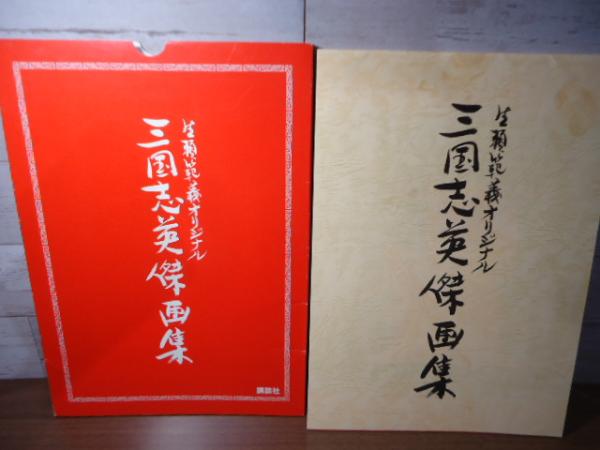 生頼範義オリジナル
三国志英傑画集
講談社
生頼範義オリジナル
三国志英傑画集